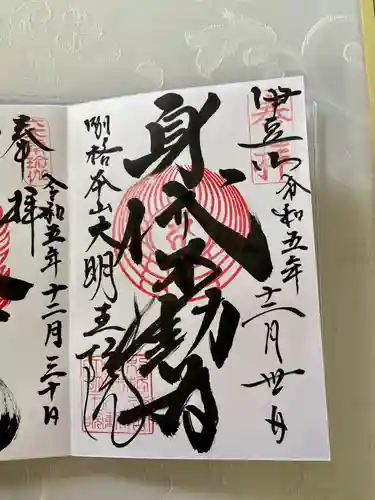 奉拝
伊豆山 令和五年
十二月卅日
身代不動尊
別格本山大明王院
奉拝
令和五年十二月三十日